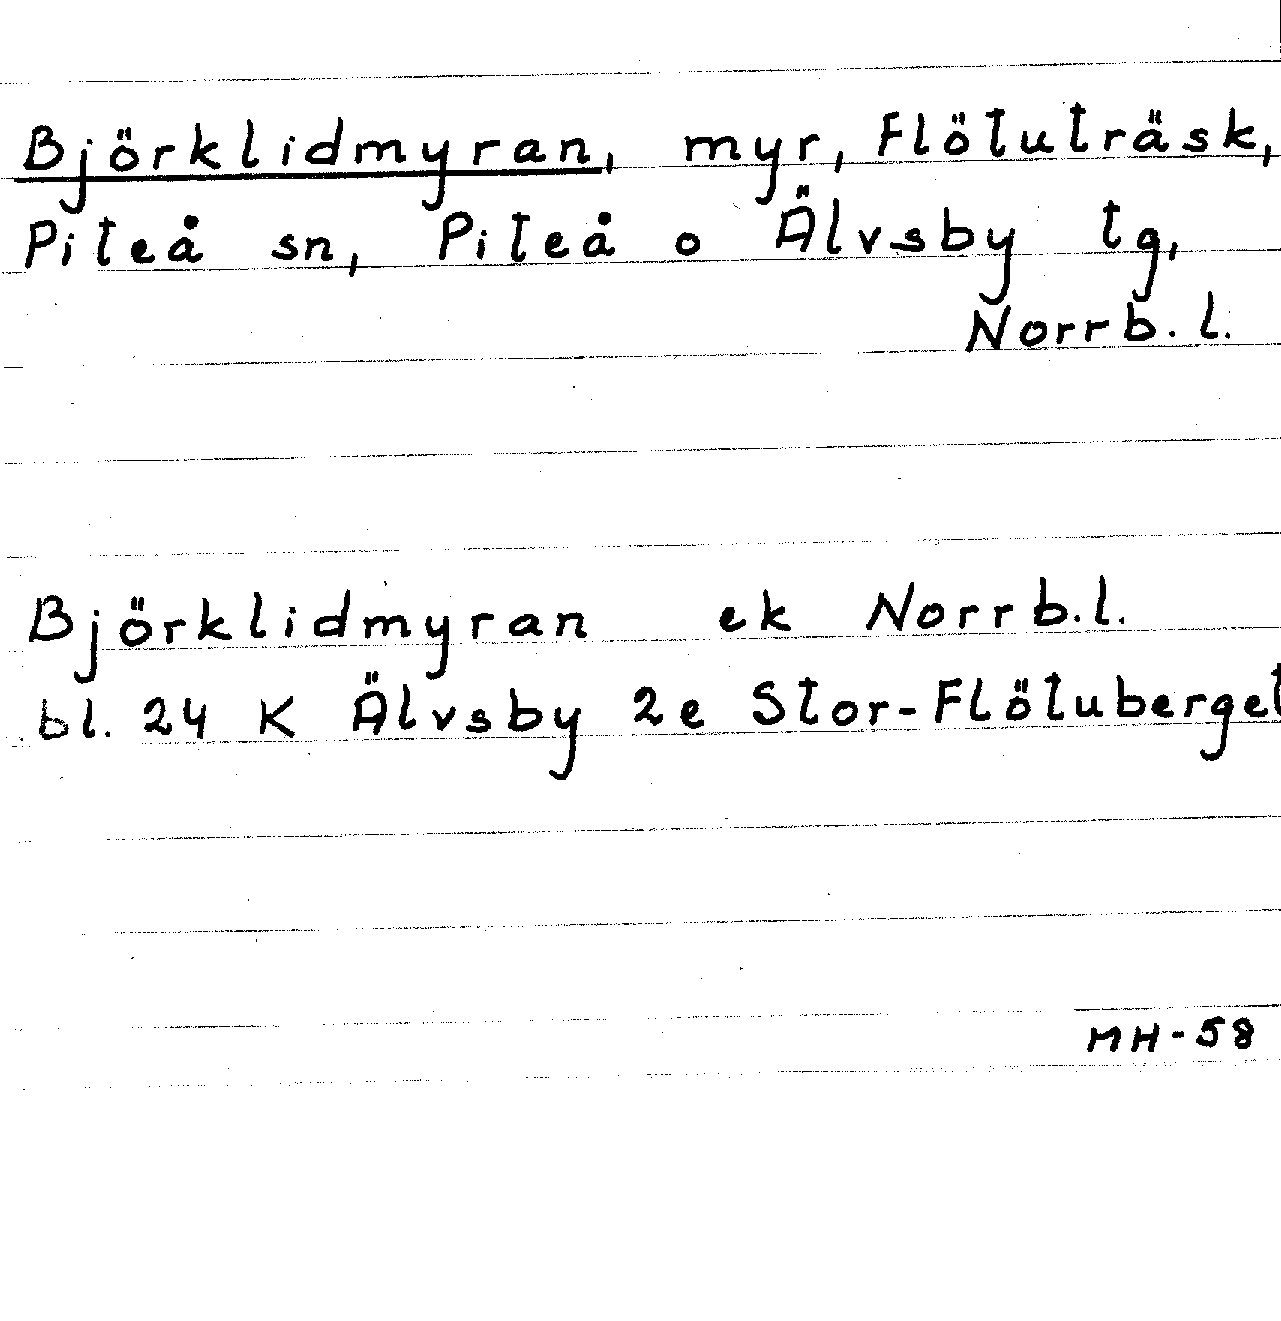 Björklidmyran, myr, Flötuträsk,
Piteå sn, Piteå o Älvsby tg,
Norrb. l.
Björklidmyran ek Norrb.l.
bl. 24 K Älvsby 2e Stor-Flötuberget
MH-58